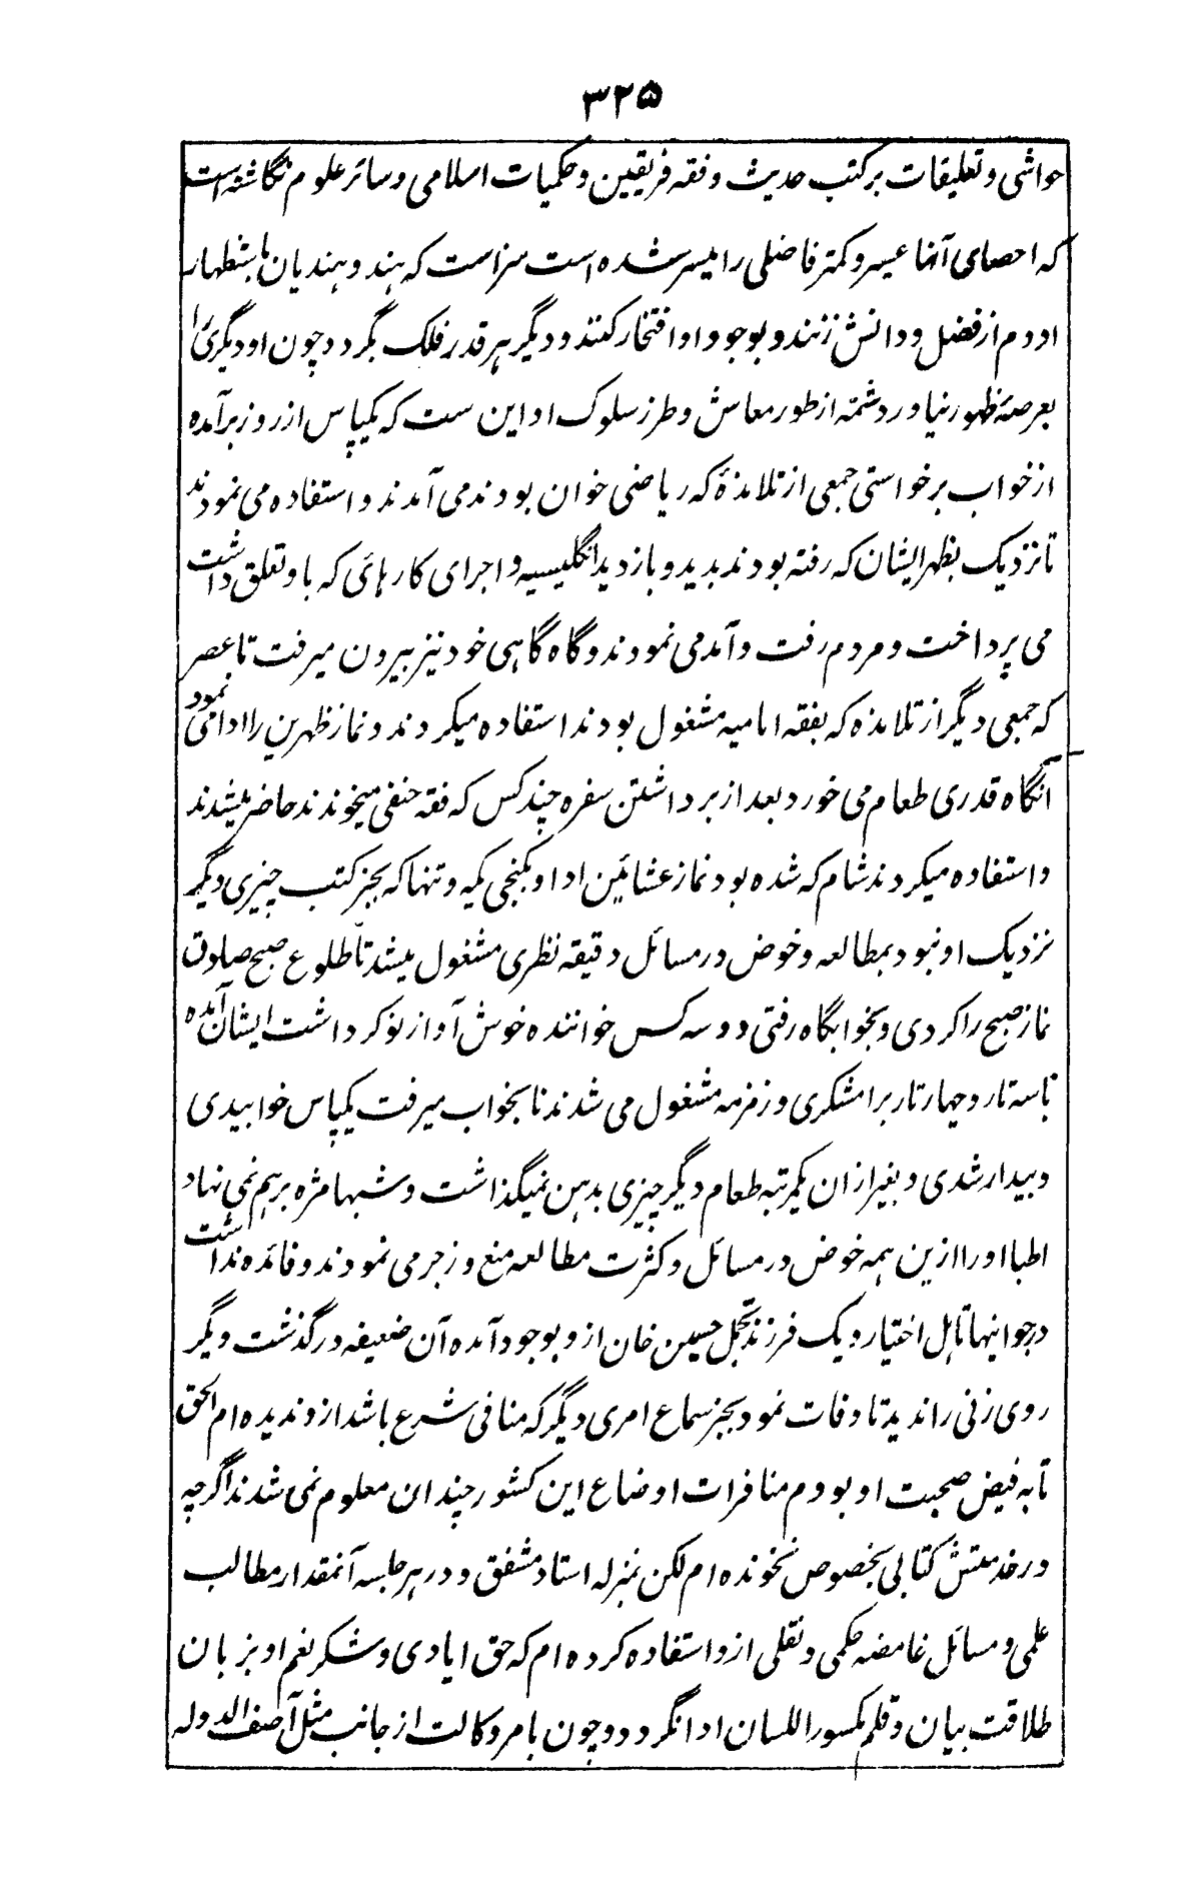 ۳۲۵
حواشی و تعلیقات بر کتب حدیث و فقه فریقین و حکمیات اسلامی و سائر علوم نگاشته است
که احصای آنها عسیر و کمتر فاضلی را میسر شده است سزاست که هند و هندیان باستظهار
او دم از فضل و دانش زنند و بوجود او افتخار کنند و دیگر هر قدر فلک بگردد چون او دیگری را
بعرصهٔ ظهور نیاورد شمّه از طور معاش و طرز سلوک او این ست که یکپاس از روز برآمده
از خواب برخواستی جمعی از تلامذهٔ که ریاضی خوان بودند می آمدند و استفاده می نمودند
تا نزدیک بظهر ایشان که رفته بودند بدید و بازدید انگلیسیه و اجرای کارهائی که باو تعلق داشت
می پرداخت و مردم رفت و آمد می نمودند و گاه گاهی خود نیز بیرون میرفت تا عصر
که جمعی دیگر از تلامذه که بفقه امامیه مشغول بودند استفاده میکردند و نماز ظهرین را ادا می نمود
آنگاه قدری طعام می خورد بعد از برداشتن سفره چند کس که فقه حنفی میخوندند حاضر میشدند
و استفاده میکردند شام که شده بود نماز عشائین ادا و بکنجی یکه و تنها که بجز کتب چیزی دیگر
نزدیک او نبود بمطالعه و خوض در مسائل دقیقه نظری مشغول میشد تا طلوع صبح صادق
نماز صبح را کردی و بخوابگاه رفتی دو سه کس خواننده خوش آواز نوکر داشت ایشان آمده
با سه تار و چهار تار برامشکری و زمزمه مشغول می شدند تا بخواب میرفت یکپاس خوابیدی
و بیدار شدی و بغیر ازان یکمرتبه طعام دیگر چیزی بدهن نمیگذاشت و شبها مژه برهم نمی نهاد
اطبا او را ازین همه خوض در مسائل و کثرت مطالعه منع و زجر می نمودند و فائده نداشت
در جوانیها تاهل اختیار و یک فرزند تجمل حسین خان ازو بوجود آمده آن ضعیفه درگذشت دیگر
روی زنی را ندید تا وفات نمود بجز سماع امری دیگر که منافی شرع باشد ازو ندیده ام الحق
تا به فیض صحبت او بودم منافرات اوضاع این کشور چندان معلوم نمی شدند اگرچه
در خدمتش کتابی بخصوص نخونده ام لکن بمنزله استاد مشفق و در هر جلسه آنمقدار مطالب
علمی و مسائل غامضه حکمی و نقلی ازو استفاده کرده ام که حق ایادی و شکر نعم او بزبان
طلاقت بیان و قلم مکسور اللسان ادا نگردد و چون بامر وکالت از جانب مثل آصف الدوله